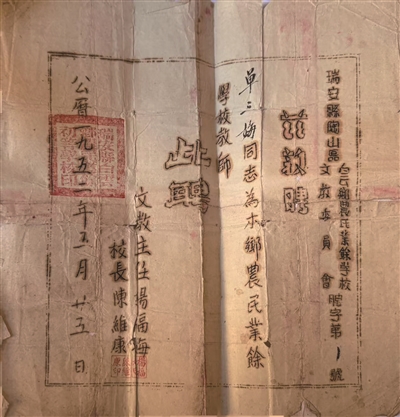 瑞安縣陶山區
白云鄉農民業餘學校
文教委員會
聘字第1號
茲敦聘
單三梅同志為本鄉農民業餘
學校教師
此聘
文教主任楊福海
校長陳維康
公曆一九五二年五月廿五日